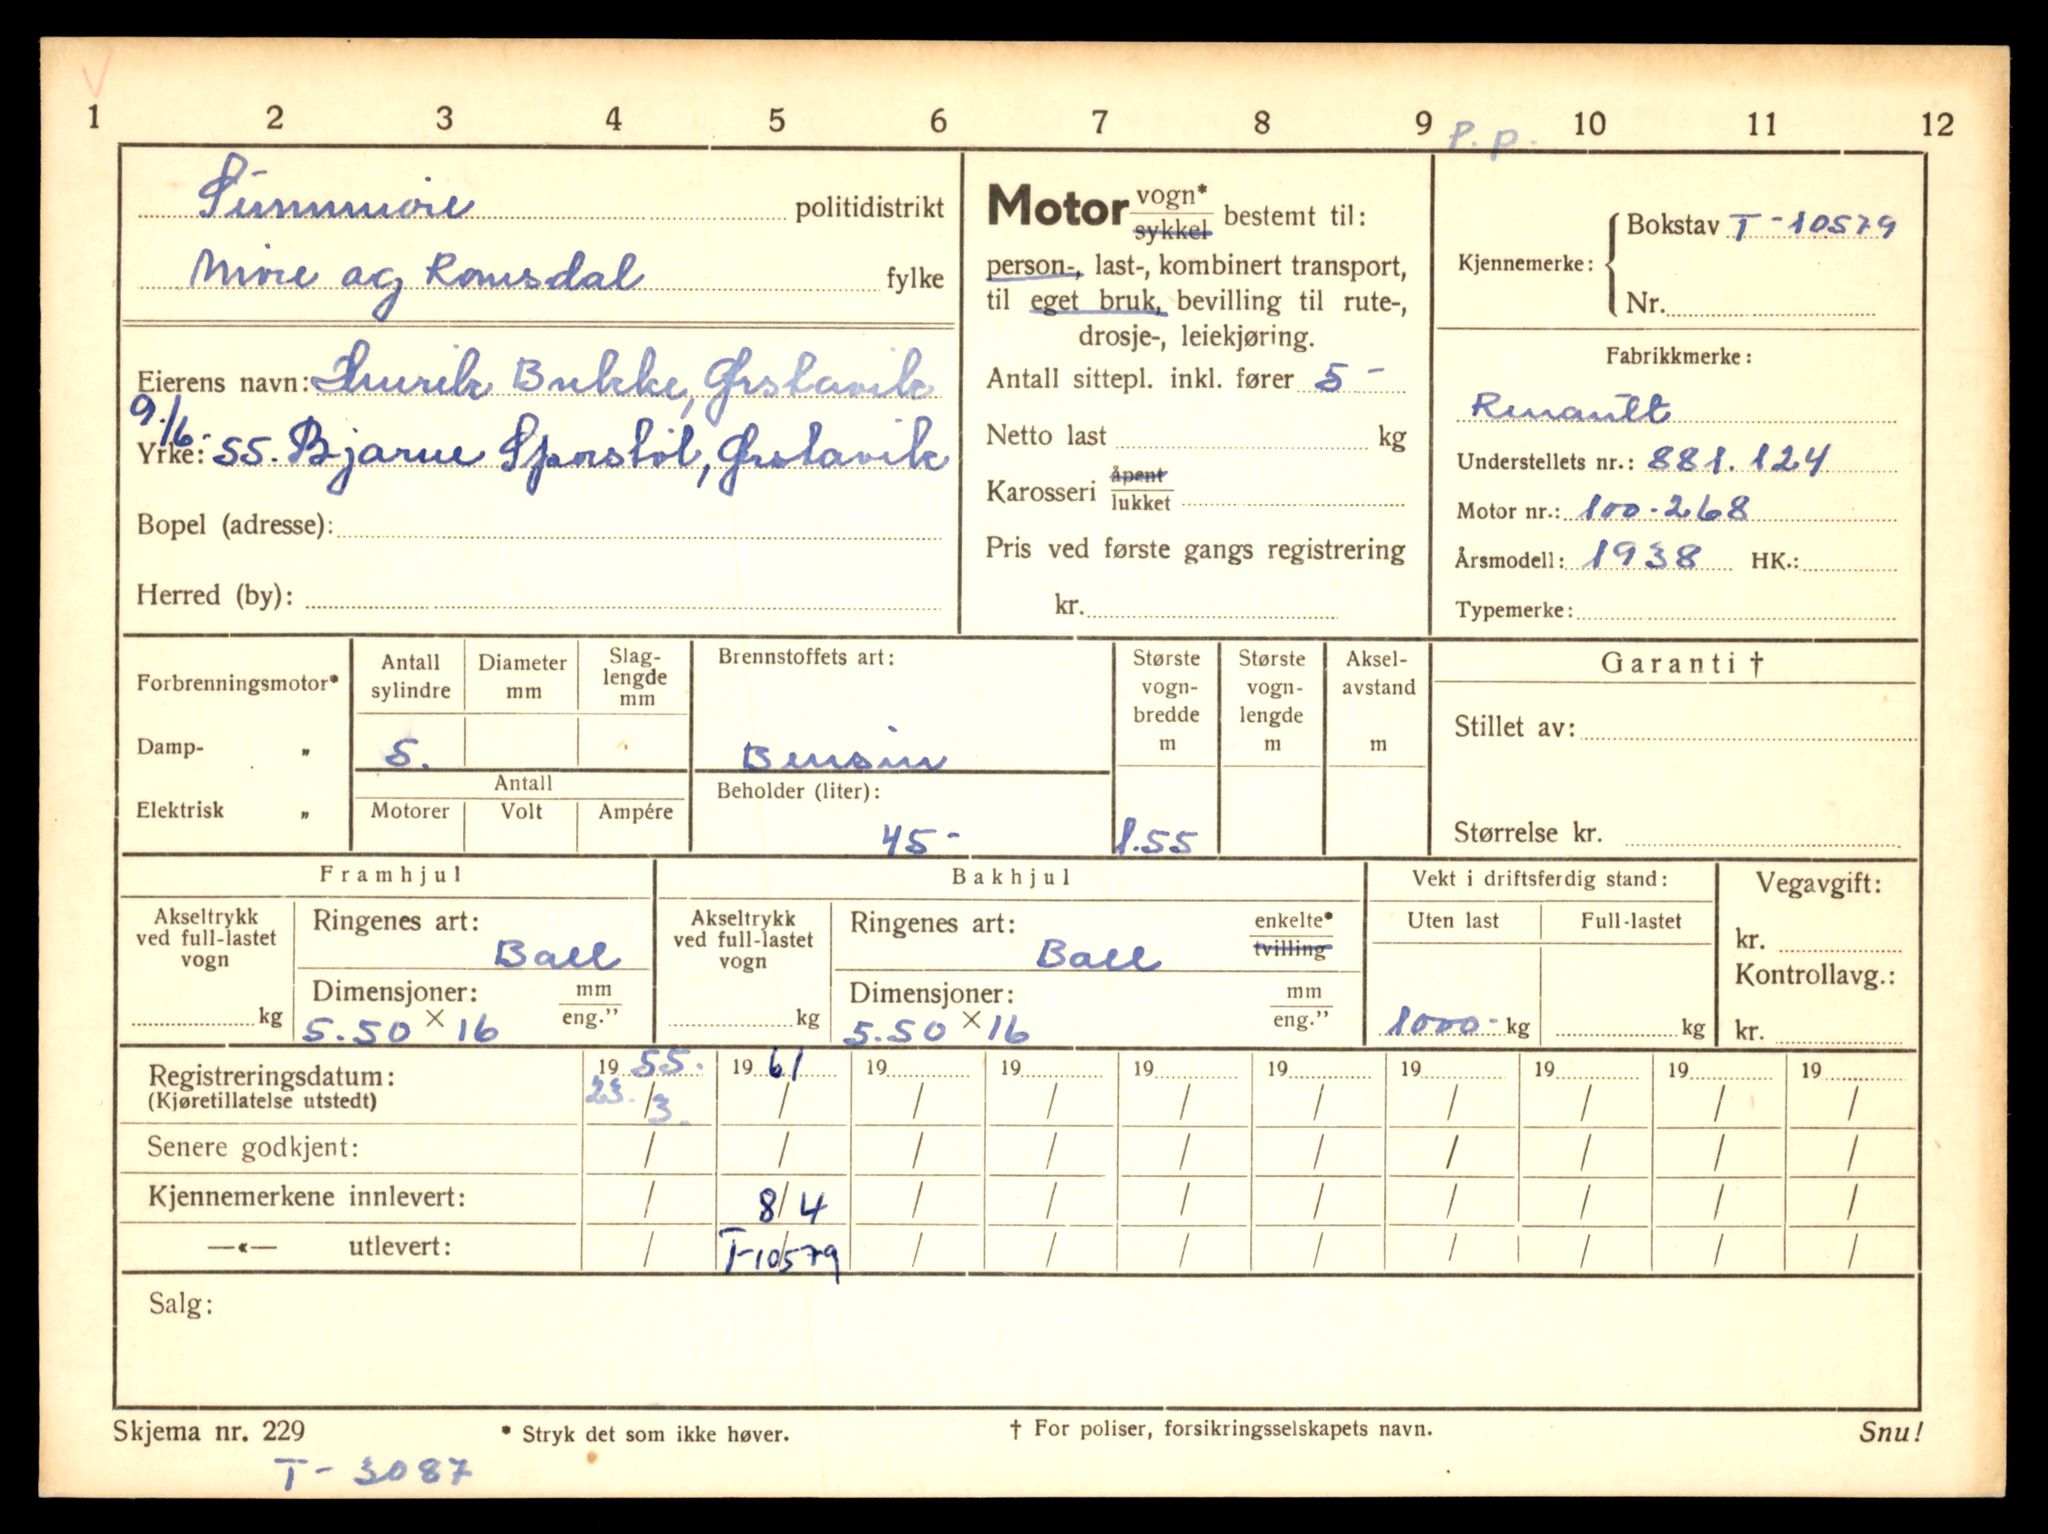 V
1 2 3 4 5 6 7 8 9 10 11 12
P.p.
Sunnmöre politidistrikt
Möre og Romsdal fylke
Eierens navn: Bukke, Ørstavik
9/6-
Yrke: 55. Bjarne Sporstöl, Ørstavik
Bopel (adresse):
Herred (by):
Motor vogn* / sykkel bestemt til:
person-, last-, kombinert transport,
til eget bruk, bevilling til rute-,
drosje-, leiekjøring.
Antall sittepl. inkl. fører 5-
Netto last kg
Karosseri åpent / lukket
Pris ved første gangs registrering
kr.
Kjennemerke: Bokstav T-10579
Nr.
Fabrikkmerke:
Renault
Understellets nr.: 881.124
Motor nr.: 100-268
Årsmodell: 1938 HK.:
Typemerke:
Forbrenningsmotor*
Damp- „
Elektrisk „
Antall sylindre
Diameter mm
Slag-
lengde
mm
5.
Antall
Motorer Volt Ampére
Brennstoffets art:
Bensin
Beholder (liter):
45-
Største
vogn-
bredde
m
1.55
Største
vogn-
lengde
m
Aksel-
avstand
m
Garanti †
Stillet av:
Størrelse kr.
Framhjul
Akseltrykk
ved full-lastet
vogn
kg
Ringenes art:
Ball
Dimensjoner: mm / eng.”
5.50 × 16
Bakhjul
Akseltrykk
ved full-lastet
vogn
kg
Ringenes art: enkelte* / tvilling
Ball
Dimensjoner: mm / eng.”
5.50 × 16
Vekt i driftsferdig stand:
Uten last Full-lastet
1000- kg kg
Vegavgift:
kr.
Kontrollavg.:
kr.
Registreringsdatum: 19 55. 19 61 19 19 19 19 19 19 19 19
(Kjøretillatelse utstedt) 23./3. / / / / / / / / /
Senere godkjent: / / / / / / / / / /
Kjennemerkene innlevert: / 8/4 / / / / / / / /
—«— utlevert: / T-10579 / / / / / / / /
Salg:
Skjema nr. 229 * Stryk det som ikke høver. † For poliser, forsikringsselskapets navn. Snu!
T-3087